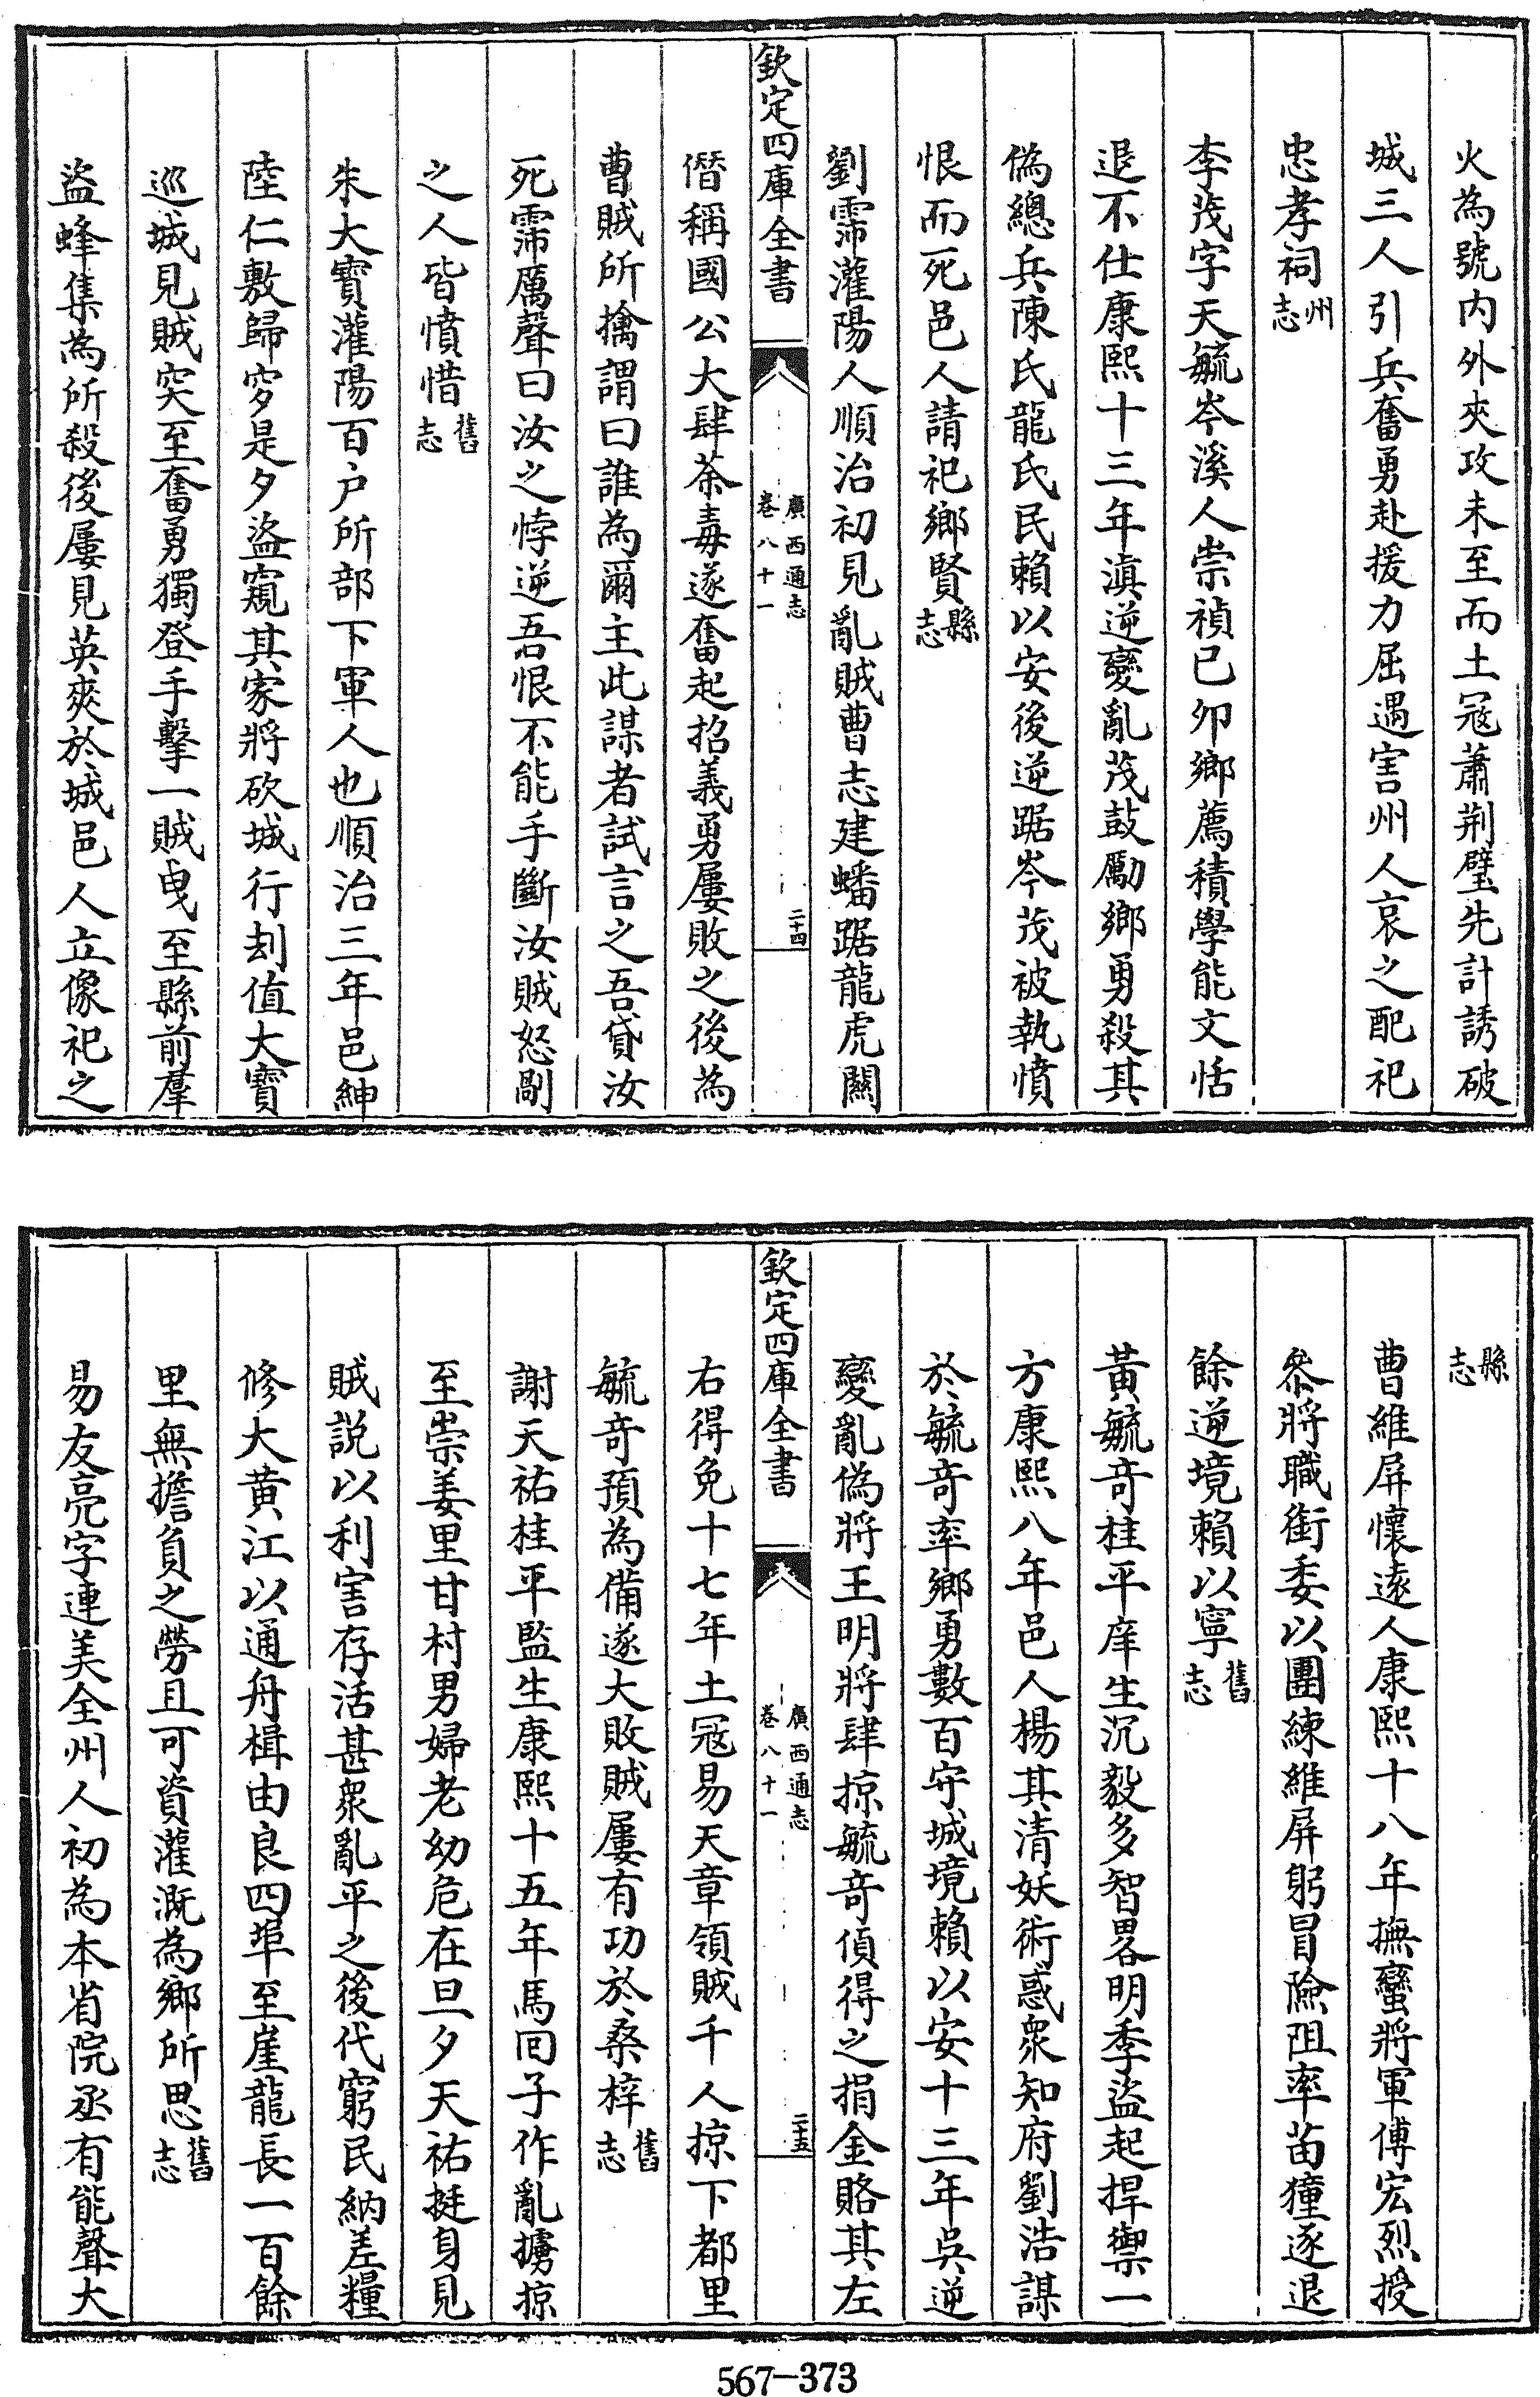 火為號内外夾攻未至而土冦蕭荆璧先計誘破
城三人引兵奮勇赴援力屈遇害州人哀之配祀
忠孝祠州志
李茂字天毓岑溪人崇禎已卯鄉薦積學能文恬
退不仕康熙十三年滇逆變亂茂鼓勵鄉勇殺其
偽總兵陳氏龍氏民賴以安後逆踞岑茂被執憤
恨而死邑人請祀鄉賢縣志
劉霈灌陽人順治初見亂賊曹志建蟠踞龍虎關
欽定四庫全書
廣西通志
卷八十一
二十四
僭稱國公大肆荼毒遂奮起招義勇屢敗之後為
曹賊所擒謂曰誰為爾主此謀者試言之吾貸汝
死霈厲聲曰汝之悖逆吾恨不能手斷汝賊怒剮
之人皆憤惜舊志
朱大寳灌陽百户所部下軍人也順治三年邑紳
陸仁敷歸穸是夕盜窺其家將砍城行刦值大寳
巡城見賊突至奮勇獨登手擊一賊曵至縣前羣
盜蜂集為所殺後屢見英爽於城邑人立像祀之
縣志
曹維屏懷遠人康熙十八年撫蠻將軍傅宏烈授
叅將職銜委以團練維屏躬冒險阻率苗獞逐退
餘逆境賴以寧舊志
黃毓竒桂平庠生沉毅多智畧明季盜起捍禦一
方康熙八年邑人楊其清妖術惑衆知府劉浩謀
於毓竒率鄉勇數百守城境賴以安十三年吳逆
變亂偽將王明將肆掠毓竒偵得之捐金賂其左
欽定四庫全書
廣西通志
卷八十一
二十五
右得免十七年土冦易天章領賊千人掠下都里
毓竒預為備遂大敗賊屢有功於桑梓舊志
謝天祐桂平監生康熙十五年馬囘子作亂擄掠
至崇姜里甘村男婦老幼危在旦夕天祐挺身見
賊説以利害存活甚衆亂平之後代窮民納差糧
修大黄江以通舟楫由良四埠至崖龍長一百餘
里無擔負之勞且可資灌溉為鄉所思舊志
易友亮字連美全州人初為本省院丞有能聲大
567-373